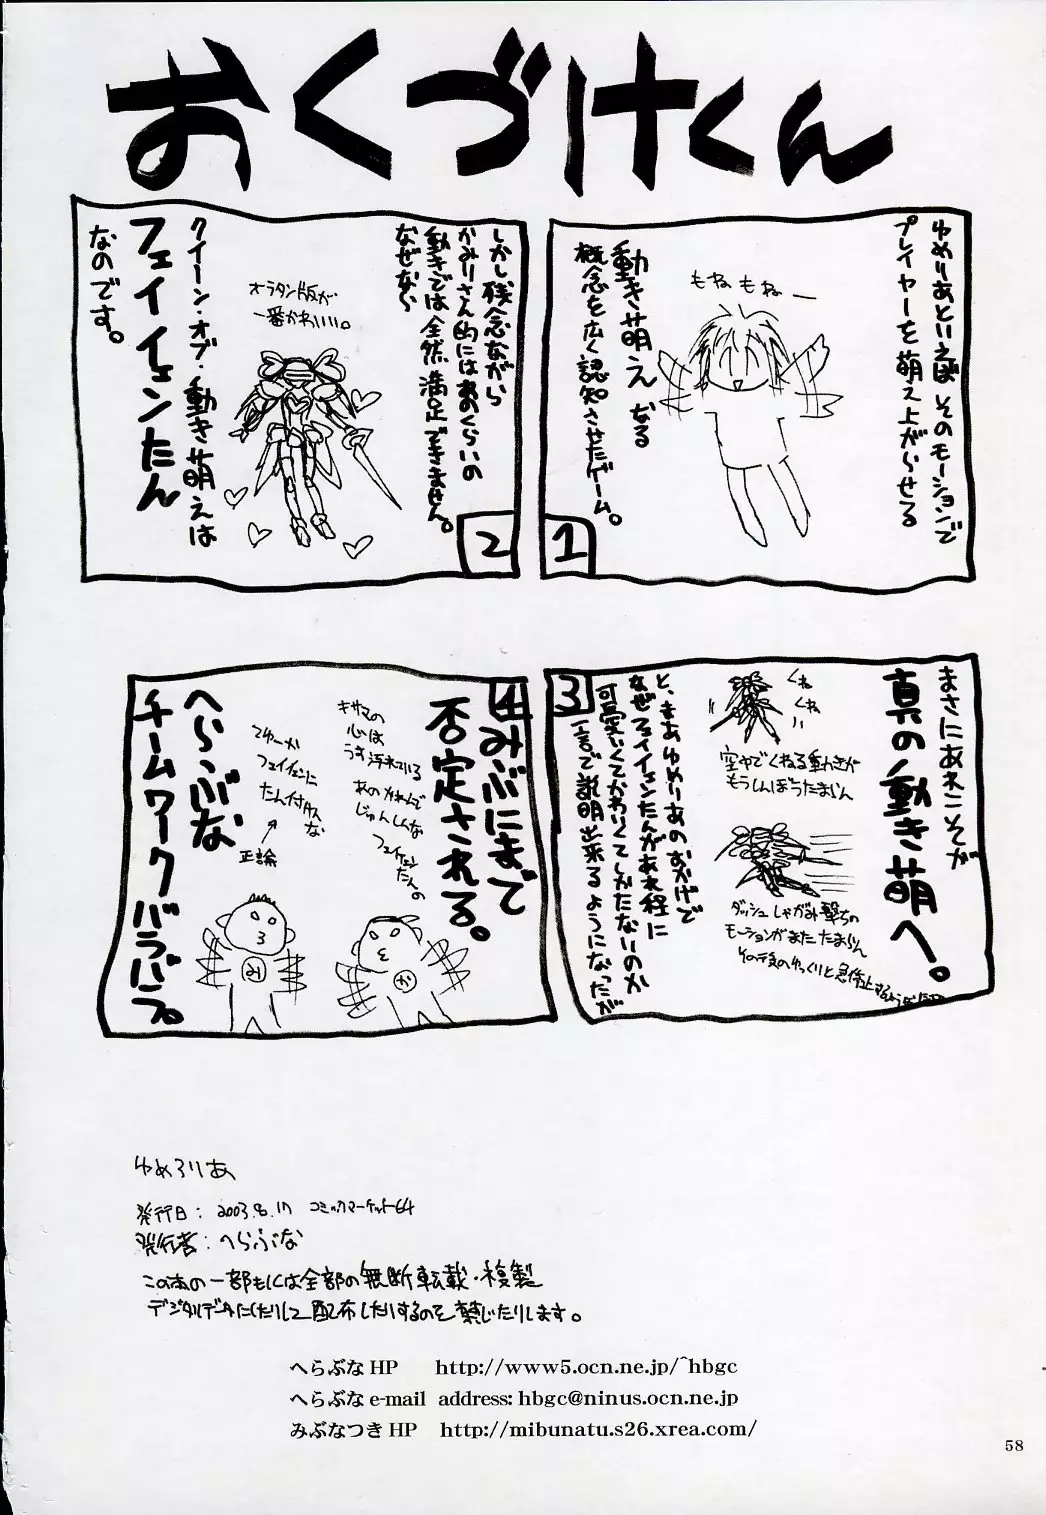 おくづけくん
ゆめりあといえばそのモーションで
プレイヤーを萌え上がらせる
もねもねー
動き萌えなる
概念を広く認知させたゲーム。
1
しかし残念ながら
かみりさん的にはあのくらいの
動きでは全然満足できません。
なぜなら
オラタン版が
一番かわいいい。
クイーン・オブ・動き萌えは
フェイイェンたん
なのです。
2
まさにあれこそが
真の動き萌へ。
くね
くね
空中でくねる動きが
もうしんぼうたまらん
ダッシュしゃがみ撃ちの
モーションがまたたまらん
その後のゆっくりと急停止する
と、まあゆめりあのおかげで
なぜフェイイェンたんがあれ程に
可愛いくてかわいくてしかたないのか
一言で説明出来るようになったが
3
4
みぶにまで
否定される。
キサマの
心は
うす汚れている
あのかれんで
じゅんしんな
フェイイェンたんの
てゆーか
フェイイェンに
たん付けんな
正論
へらぶな
チームワークバラバラ。
ゆめろりあ
発行日:2003.8.17 コミックマーケット64
発行者:へらぶな
この本の一部もしくは全部の無断転載・複製
デジタルデータにしたりして配布したりするのを禁じたりします。
へらぶなHP http://www5.ocn.ne.jp/~hbgc
へらぶなe-mail address: hbgc@ninus.ocn.ne.jp
みぶなつきHP http://mibunatu.s26.xrea.com/
58